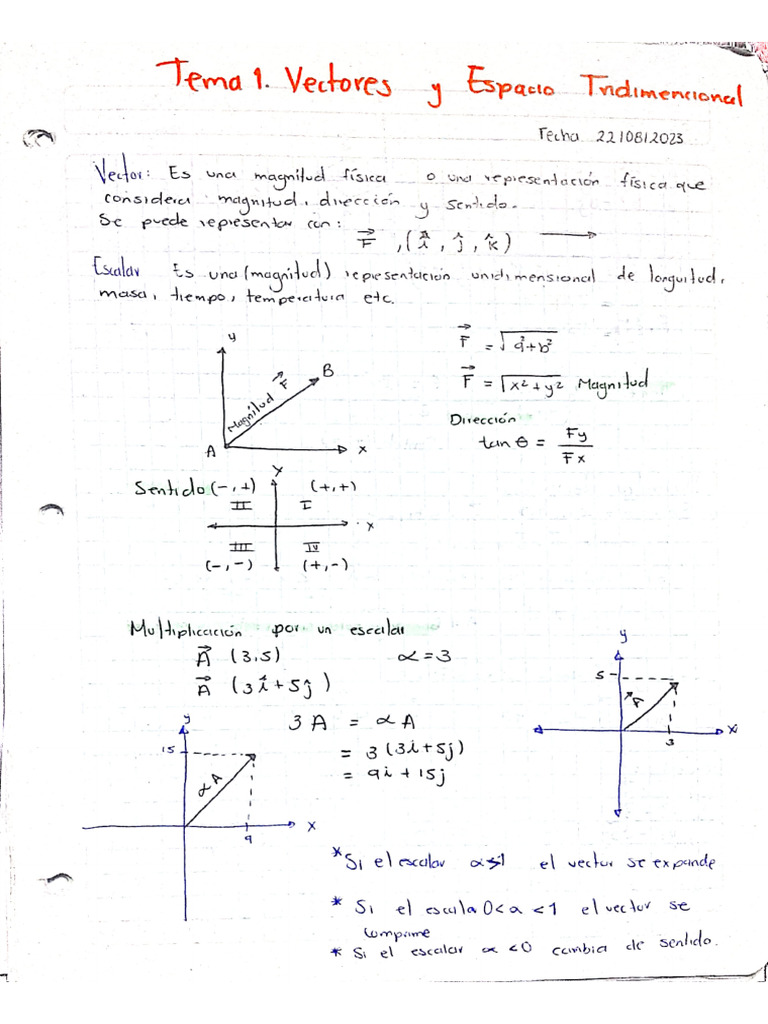 Tema 1. Vectores y Espacio Tridimencional
Fecha 22/08/2023
Vector: Es una magnitud física o una representación física que
considera magnitud, dirección y sentido.
Se puede representar con:
F⃗ , (î, ĵ, k̂)
Escalar Es una (magnitud) representación unidimensional de longuitud,
masa, tiempo, temperatura etc.
y
Magnitud F⃗
B
A
x
F⃗ = √a²+b²
F⃗ = √x²+y² Magnitud
Dirección
tan θ = Fy/Fx
Sentido (-,+) y (+,+)
II I
x
III IV
(-,-) (+,-)
Multiplicación por un escalar
A⃗ (3,5) α=3
A⃗ (3î+5ĵ)
3A = αA
= 3(3i+5j)
= 9i+15j
y
15
αA
9
x
y
5
A⃗
3
x
*Si el escalar α>1 el vector se expande
* Si el escala 0<α<1 el vector se
comprime
* Si el escalar α<0 cambia de sentido.